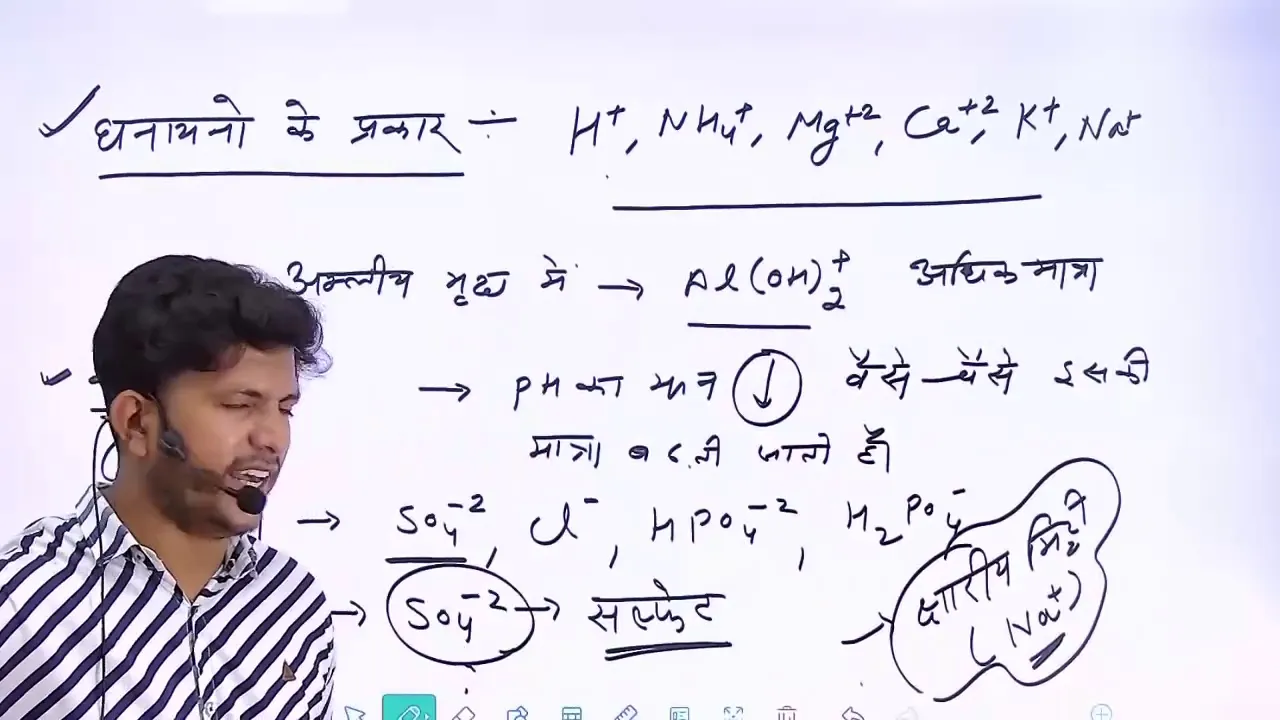 धनायनो के प्रकार ÷ H⁺, NH₄⁺, Mg⁺², Ca⁺², K⁺, Na⁺
अम्लीय मृदा में → Al(OH)₂⁺ अधिक मात्रा
→ pH का मान ↓ वैसे-वैसे इसकी
मात्रा बढती जाती है।
→ SO₄⁻², Cl⁻, HPO₄⁻², H₂PO₄⁻
→ SO₄⁻² → सल्फेट
क्षारीय मिट्टी
(Na⁺)